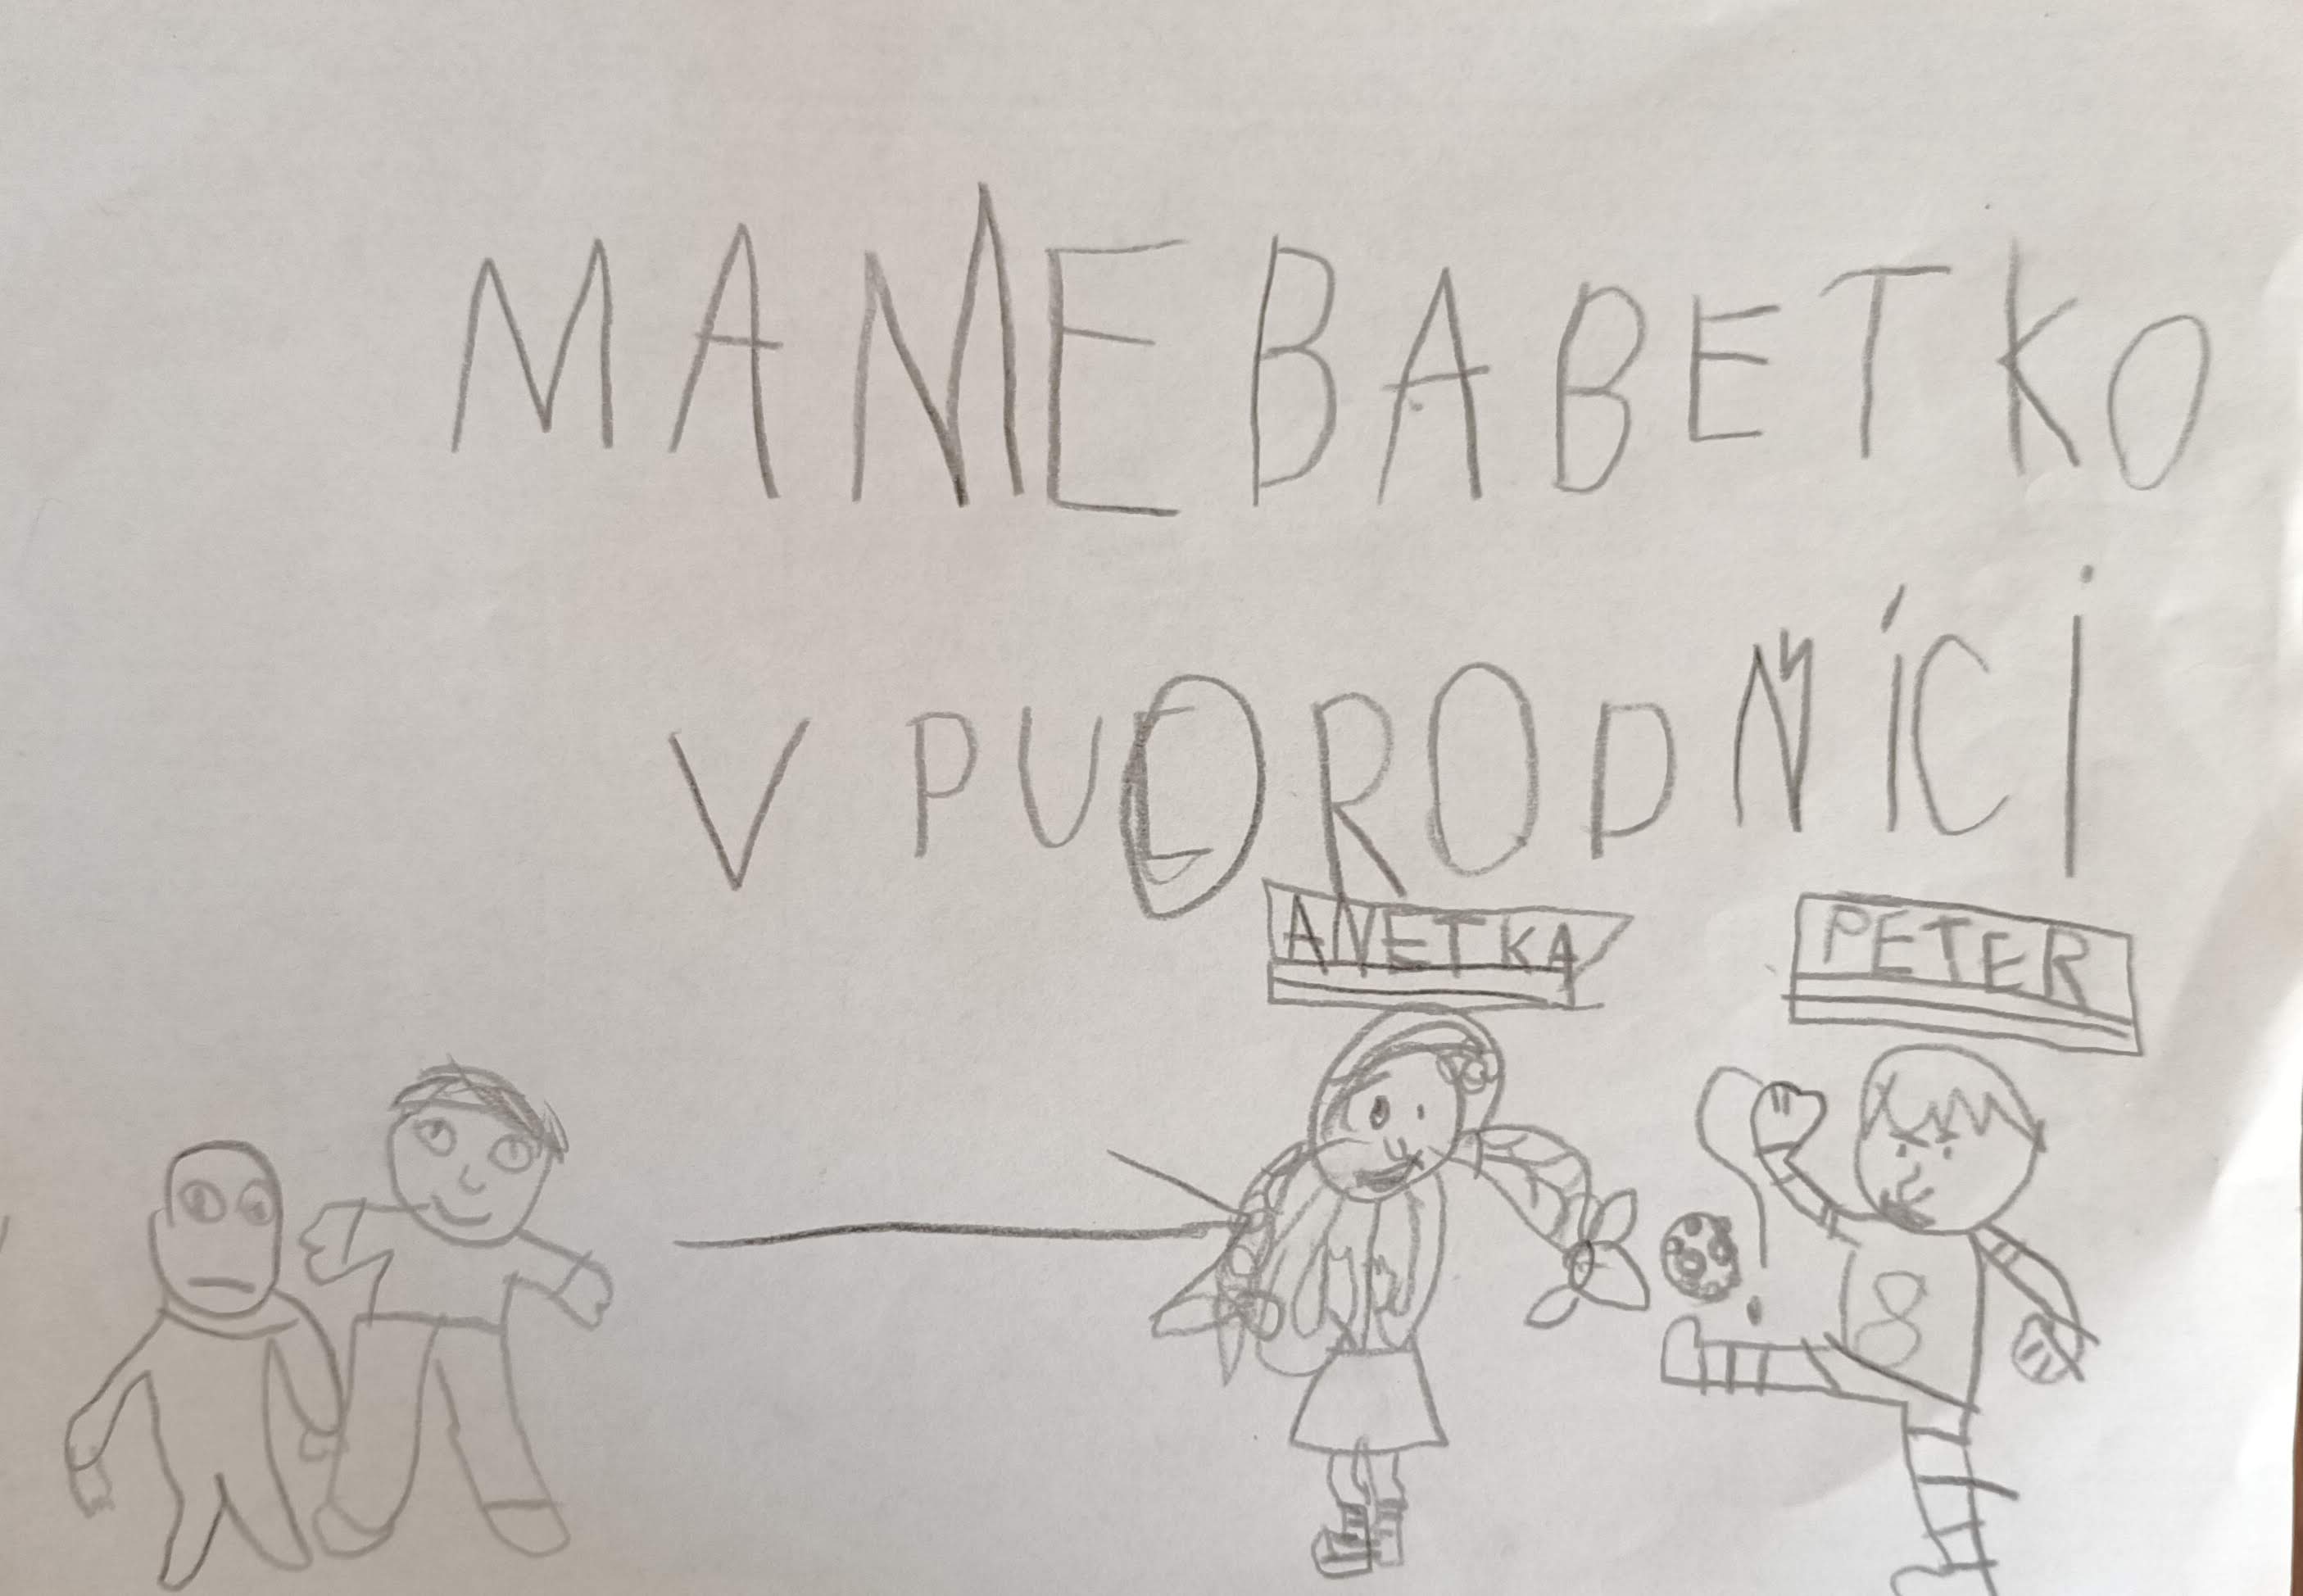 MAMEBABETKO
V PUORODNÍCI
ANETKA
PETER
8